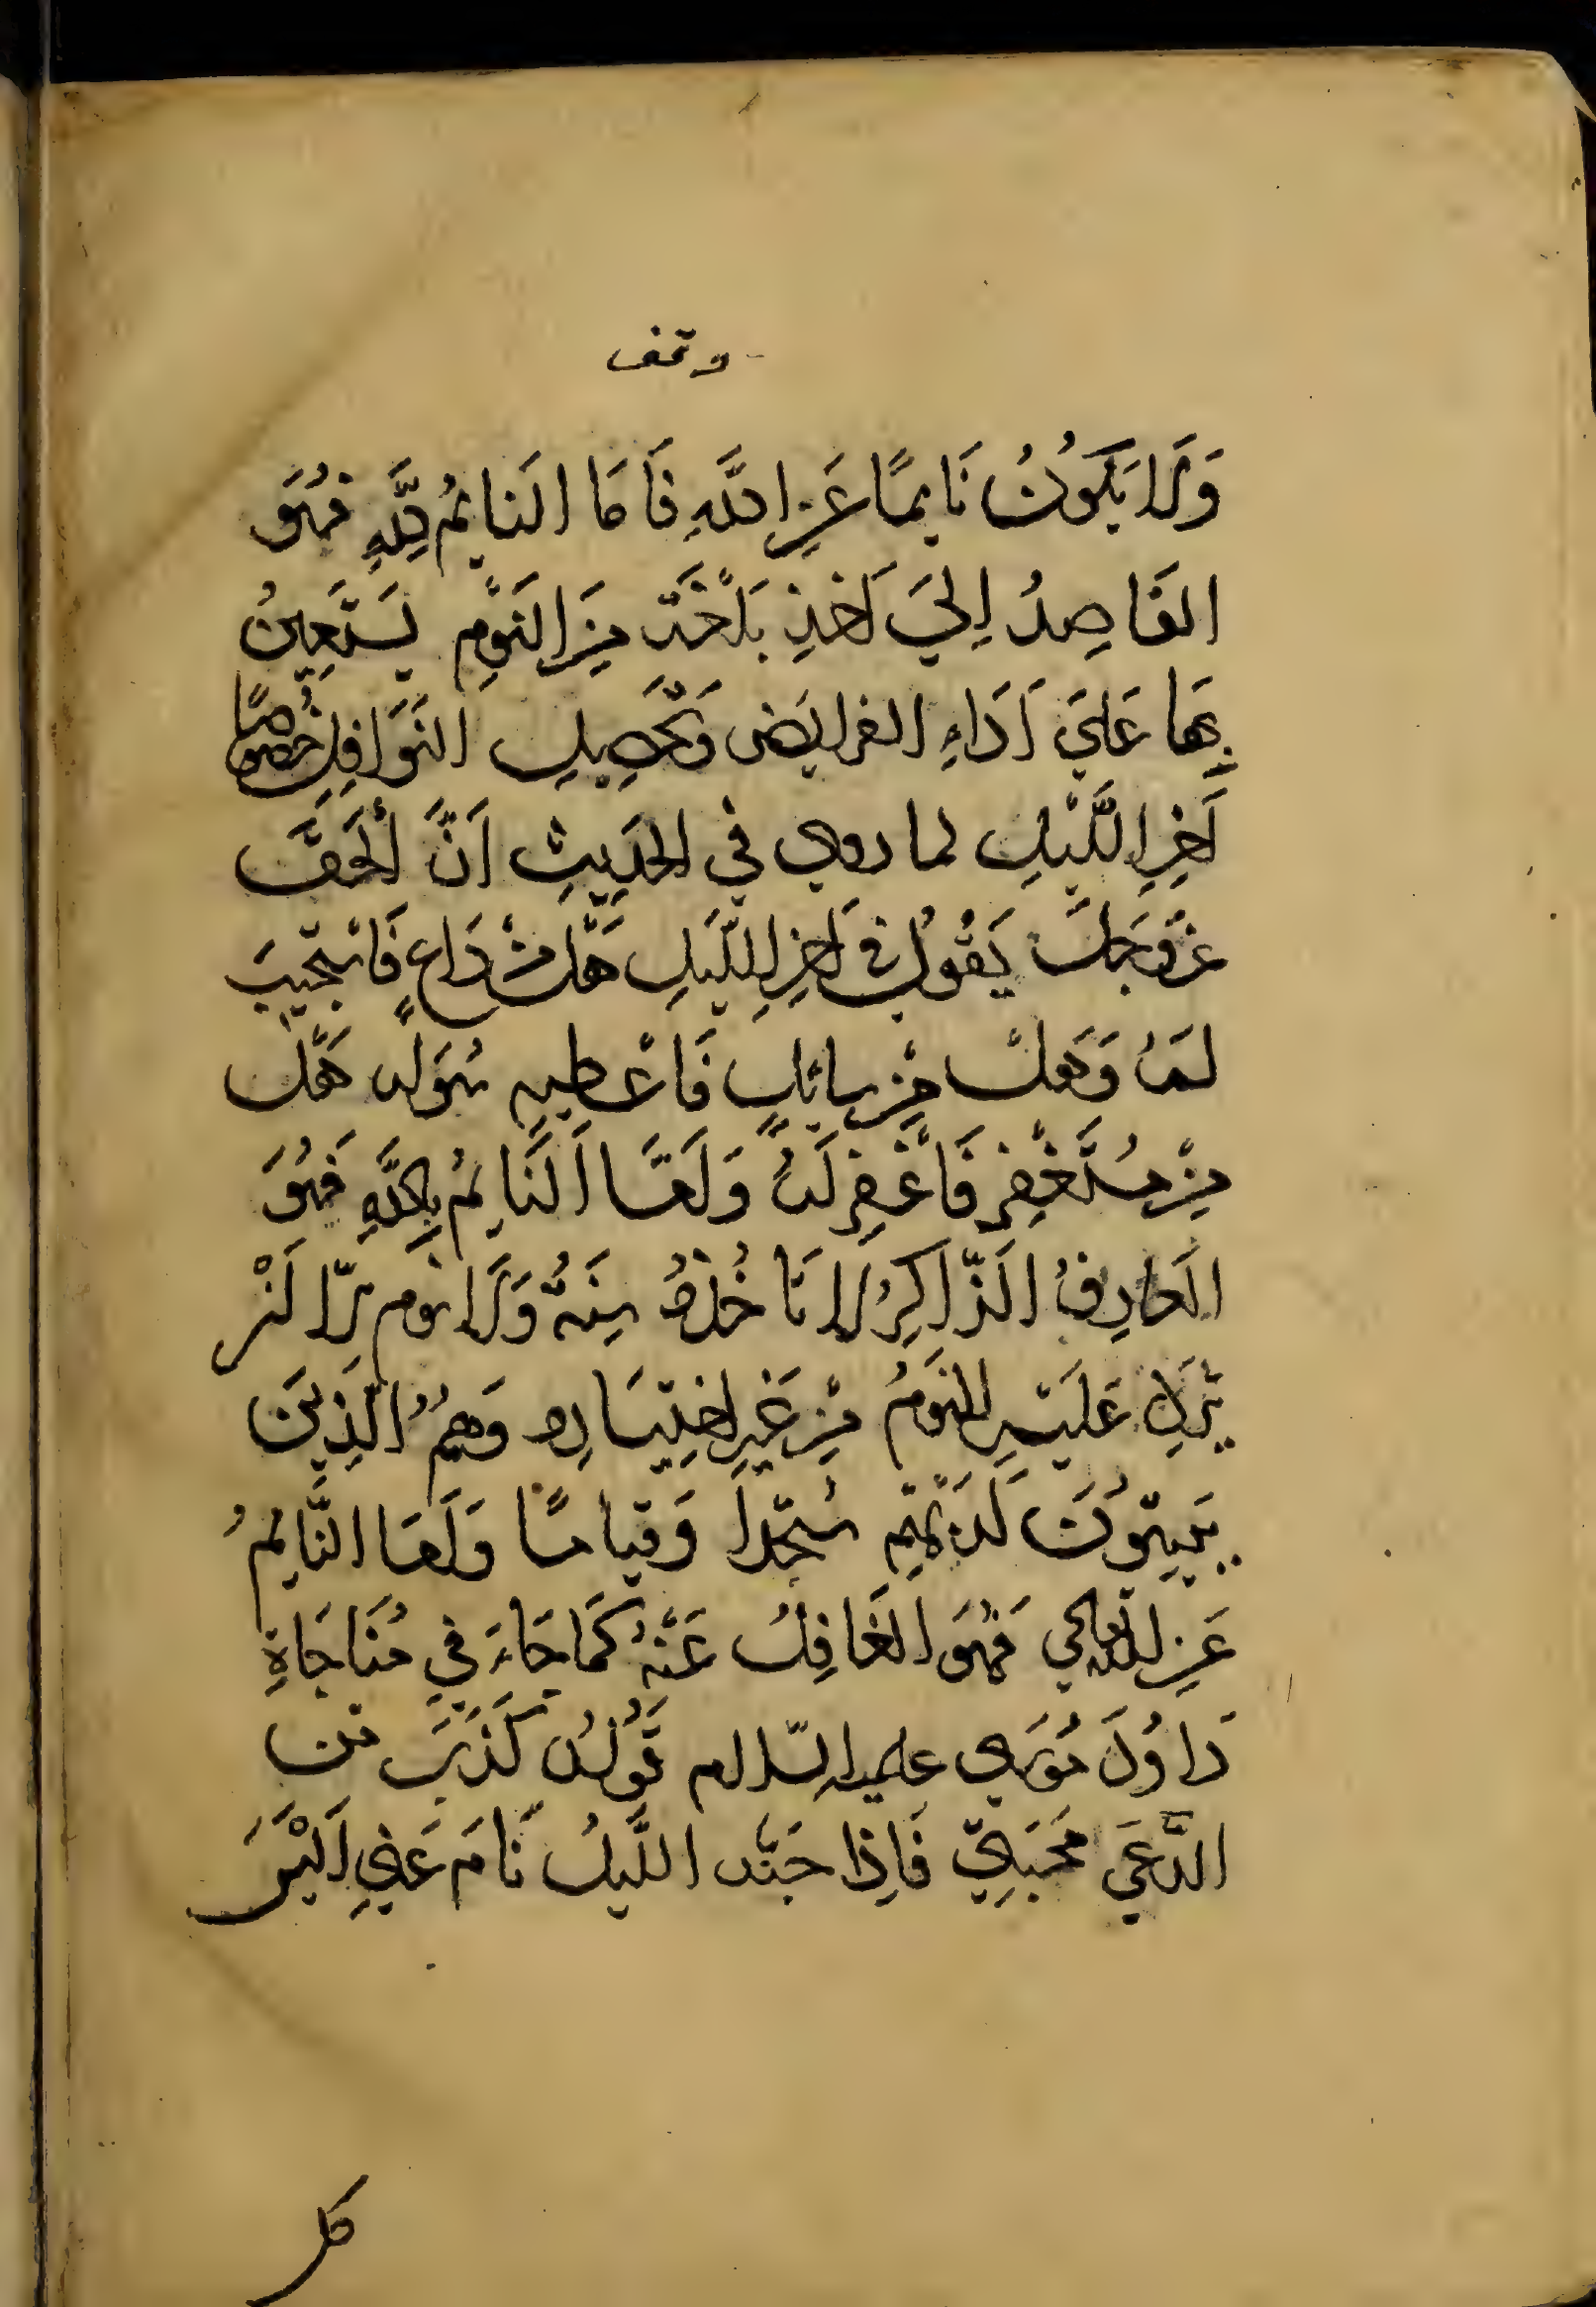 وقف
وَلَا يَكُونُ نَايمًا عَنِ اللَّهِ فَأَمَا النَايمُ لِلَّهِ فَهُوَ
القَاصِدُ اِليَ اَخذِ بَلْغَةٍ مِنَ النَومِ يَستَعِينُ
بِهَا عَليَ اَدَاءِ الفرايَض وَتَحصِيلِ النَوَافِلِ خُصُوصًا
اَخِرِ اللَّيْلِ لما روي في الحَدِيثِ اَنَّ الحَقَّ
عَزَّوَجَلَّ يَقُولُ في اَخِرِ اللَّيلِ هَل مِنْ دَاعٍ فَاسْتَجيبَ
لَهُ وَهَلْ مِنْ سايلٍ فَاعْطِيهِ سُوَلهُ هَلْ
مِنْ مُسْتَغْفِرٍ فَاَغْفِرَ لَهُ وَاَمَّا اَلنَايمُ بِاللَّهِ فَهُوَ
العَارِفُ الذَّاكِرُ لا تَاخُذهُ سِنَةٌ وَلَا نوم الا اَنْ
يَنزِلَ عَلَيْهِ النَومُ مِنْ غَيرِ اختِيَارِهِ وَهُمُ الَّذِينَ
يَبِيتُونَ لَرَبِّهِم سُجَّداً وَقياماً وَاَمَا النَّايمُ
عَنِ اللهِ تعالي فَهُوَ الغَافِلُ عَنْهُ كَمَا جَاءَ في مُنَاجَاةِ
دَاوُدَ مُوسَي عليه السّلام قَولُهُ كَذَبَ من
ادَّعَي مَحَبَتِي فَاِذا جَنَّهُ اللَّيلُ نَامَ عَنِي اَلَيْسَ
كل